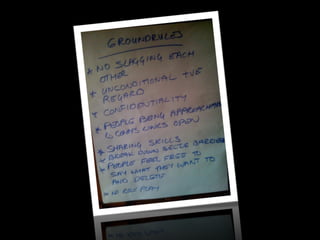 GROUNDRULES
* NO SLAGGING EACH
OTHER
* UNCONDITIONAL +VE
REGARD
* CONFIDENTIALITY
* PEOPLE BEING APPROACHABLE
↳ COMMS LINES OPEN
* SHARING SKILLS
* BREAK DOWN BARRIERS
* PEOPLE FEEL FREE TO
SAY WHAT THEY WANT TO
AND
* NO ROLE PLAY